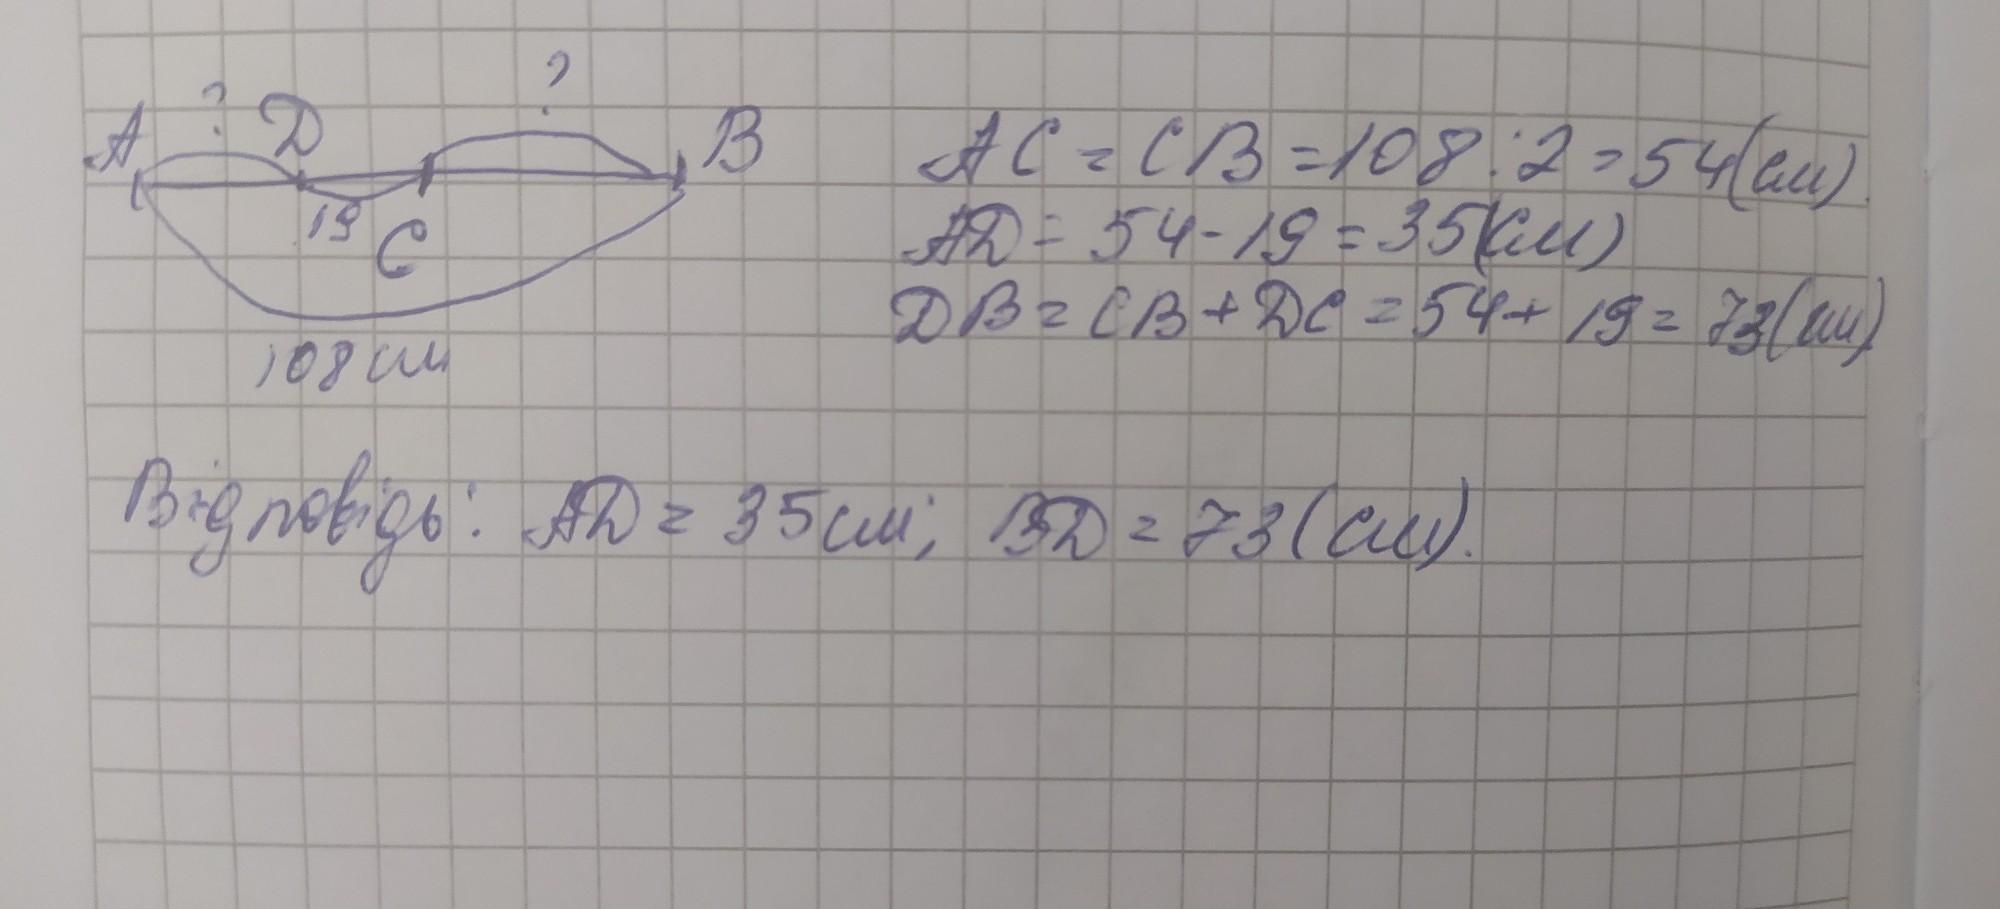 ? ?
A D B
19 C
108 см
AC = CB = 108 : 2 = 54 (см).
AD = 54 - 19 = 35 (см)
DB = CB + DC = 54 + 19 = 73 (см)
Відповідь: AD = 35 см; BD = 73 (см).